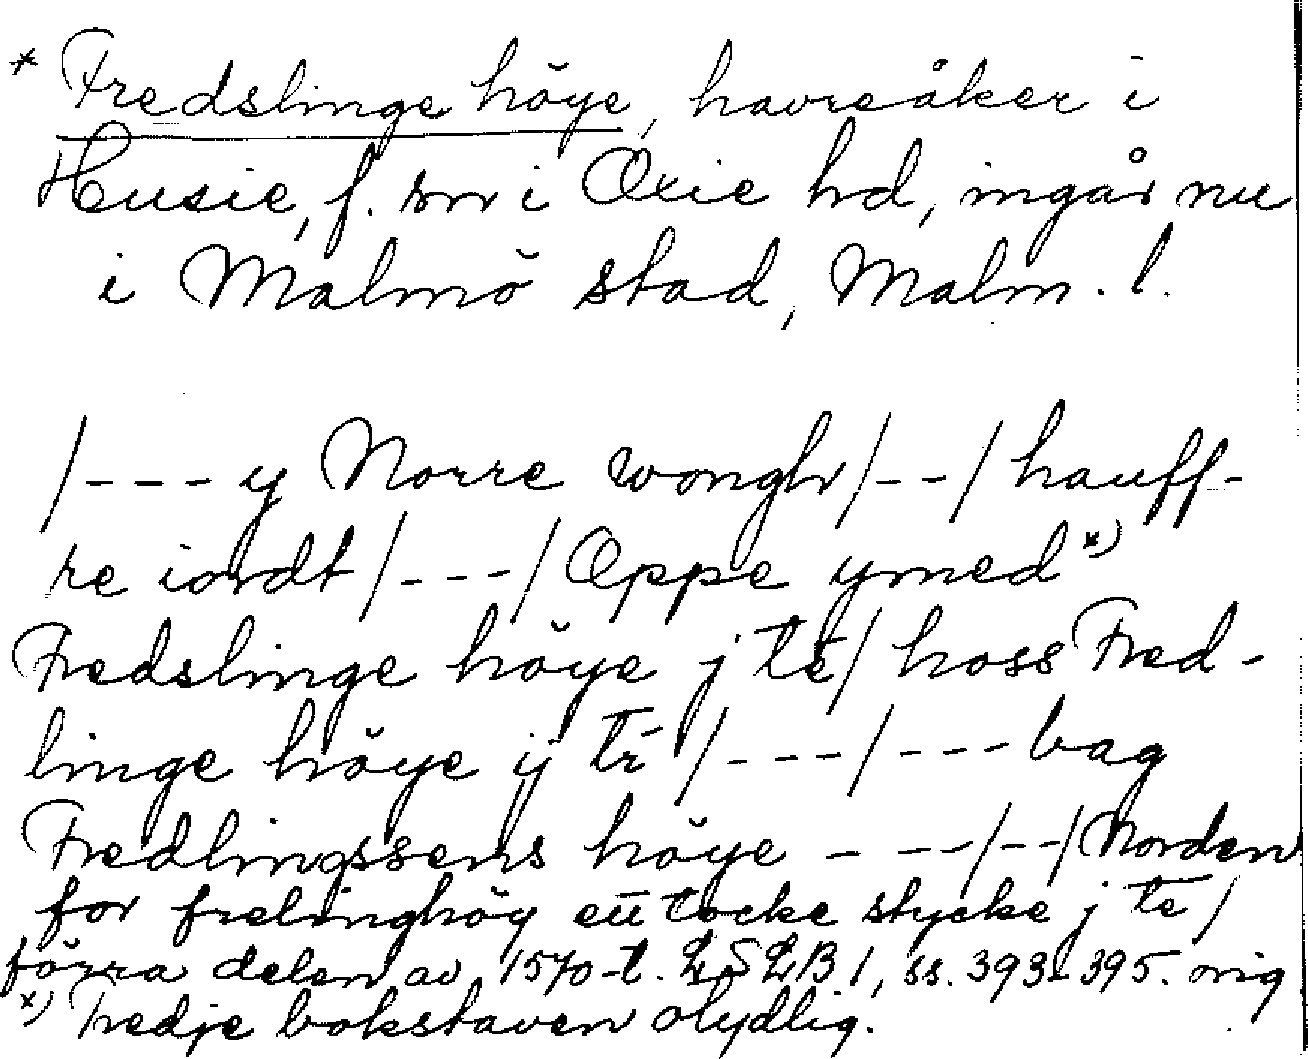 * Fredslinge höye, havreåker i
Husie, f. sn i Oxie hd, ingår nu
i Malmö stad, Malm. l.
/--- y Norre wongh/--/hauff-
re iordt/---/Oppe ymed*)
Fredslinge höye j te/ hoss Fred-
linge höye ij tí /---/---bag
Fredlingssens höye ---/--/Norden
for frelinghöy eü tocke stycke j te/
förra delen av 1570-t. LSLB 1, ss. 393-395. orig
*) Tredje bokstaven otydlig.